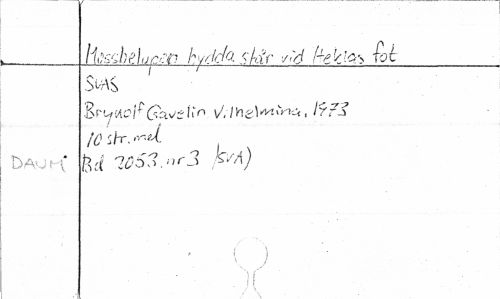 Mossbelupen hydda står vid Heklas fot
SVAS
Brynolf Gavelin Vilhelmina, 1973
10 str. mel
DAUM Bd 2053. nr 3 (SVA)